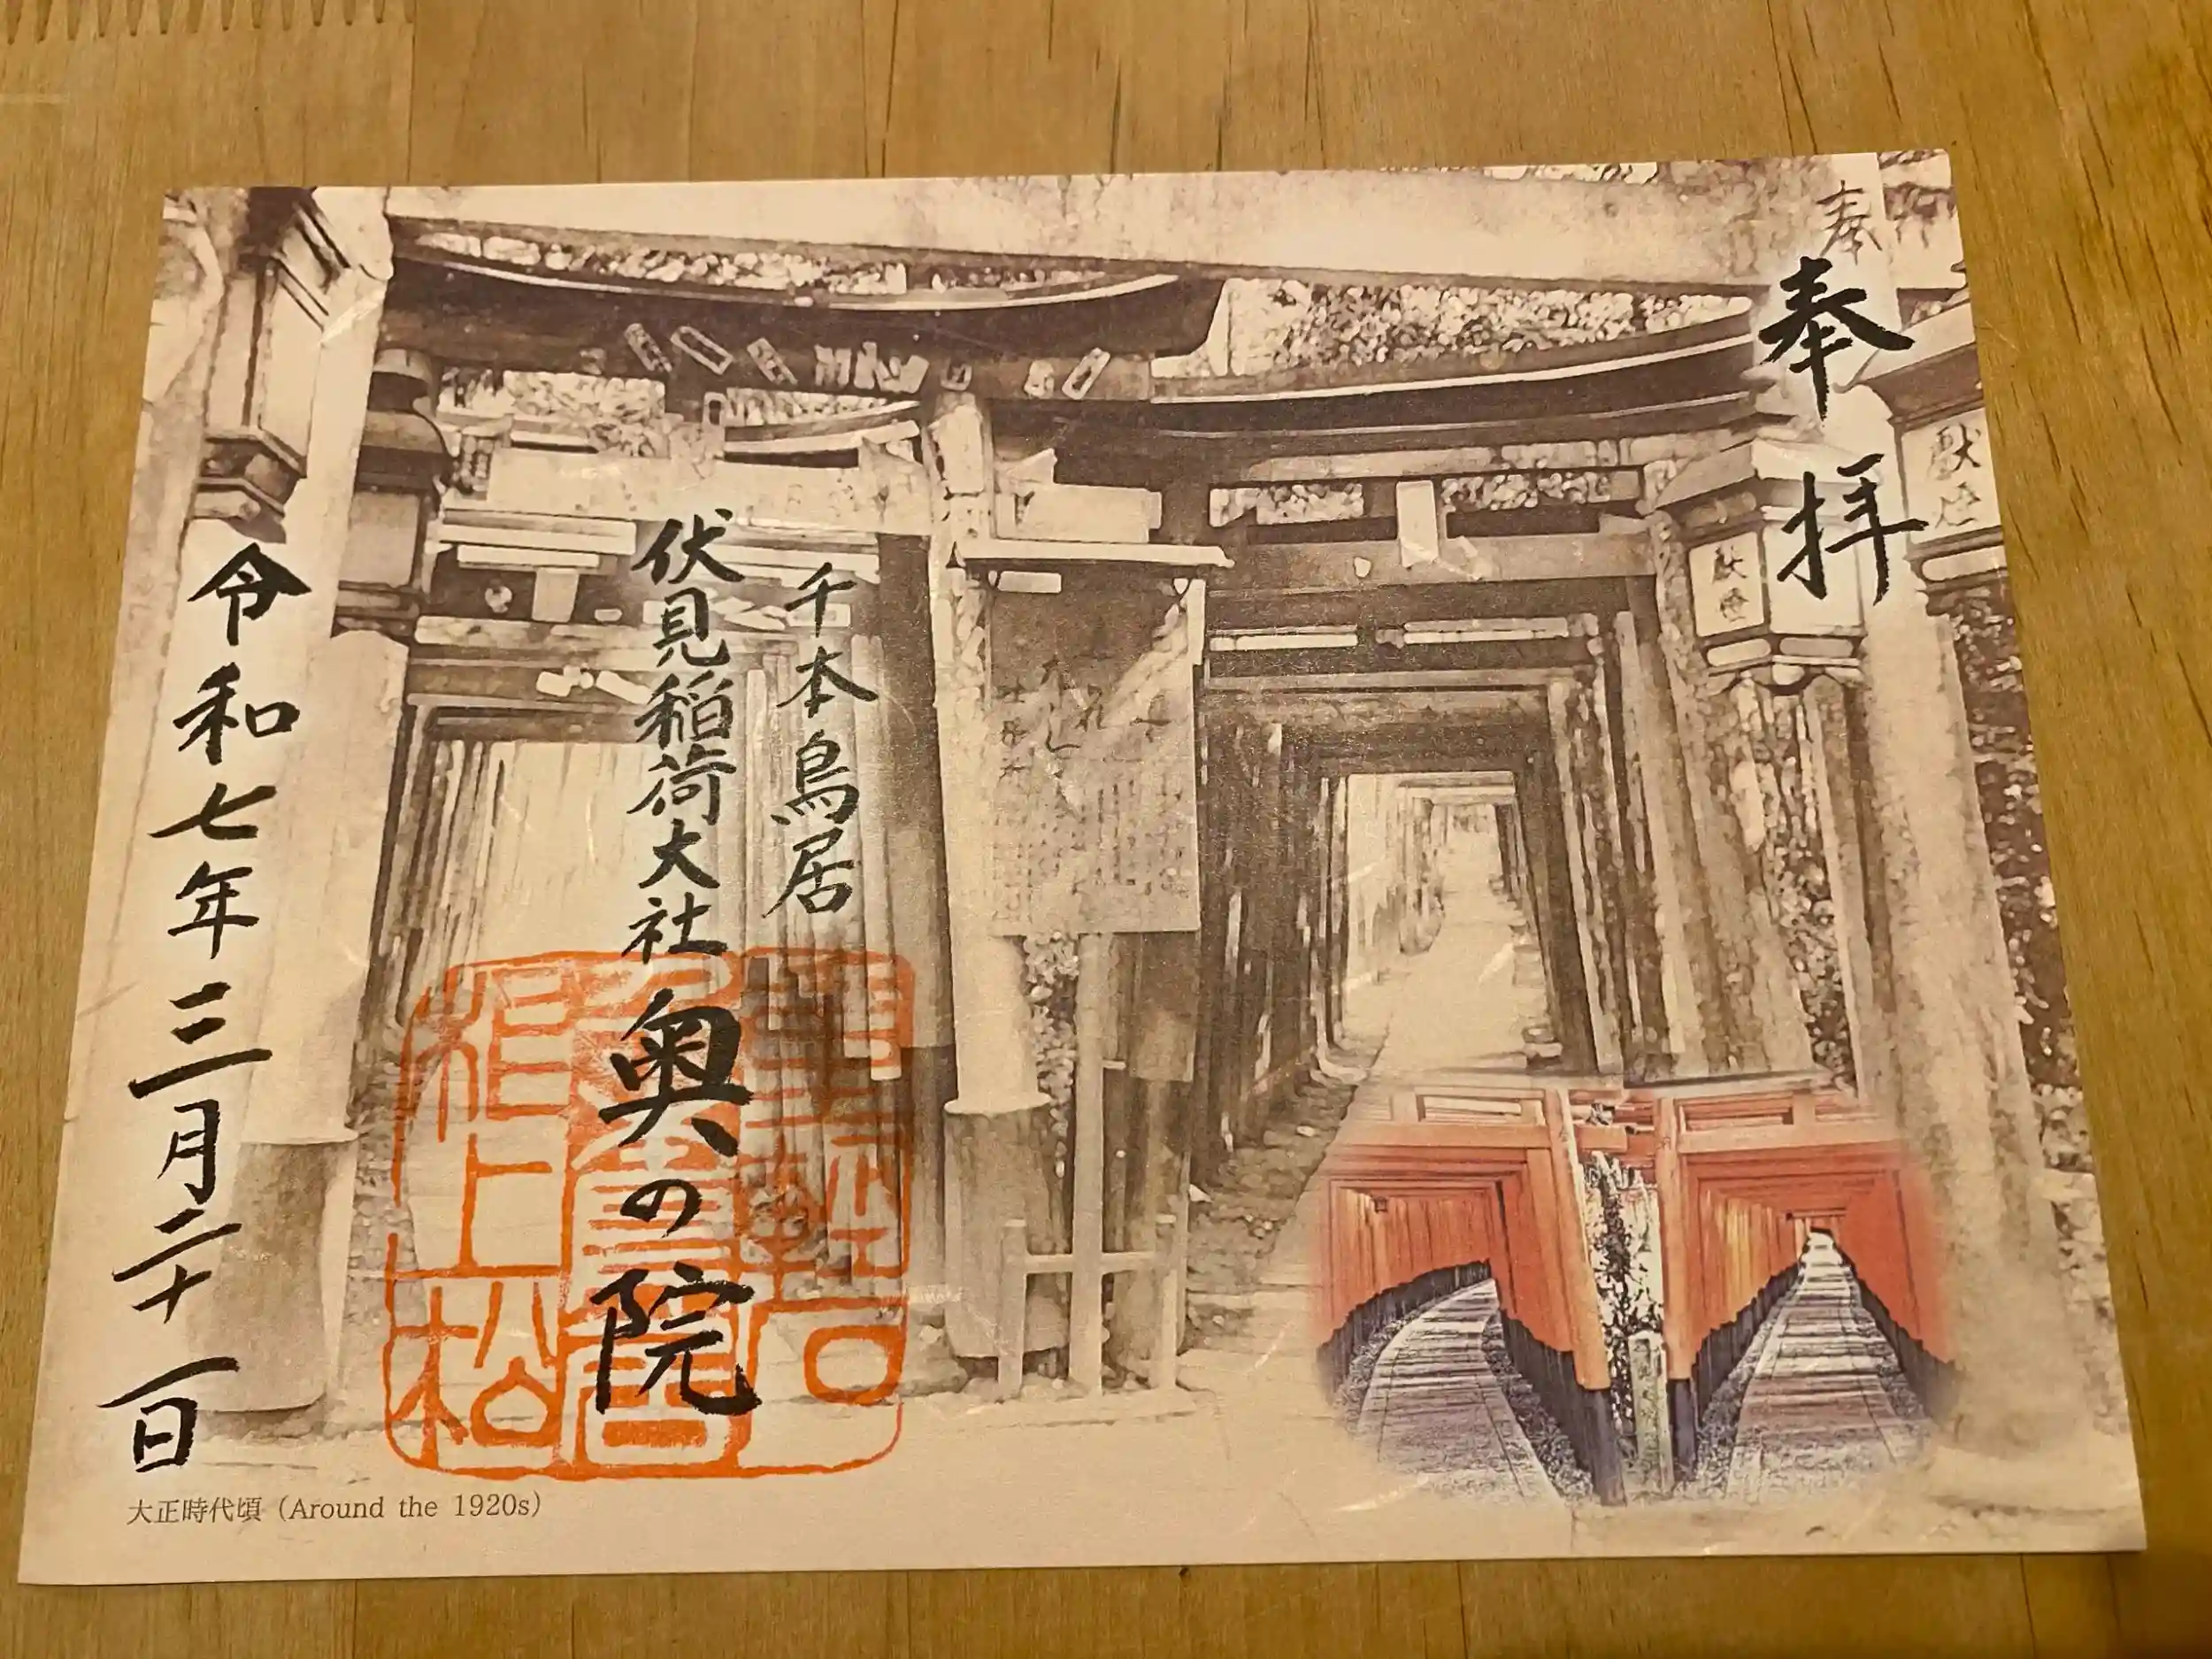 奉拝
千本鳥居
伏見稲荷大社奥の院
令和七年三月二十一日
奉
献燈
献燈
大正時代頃 (Around the 1920s)